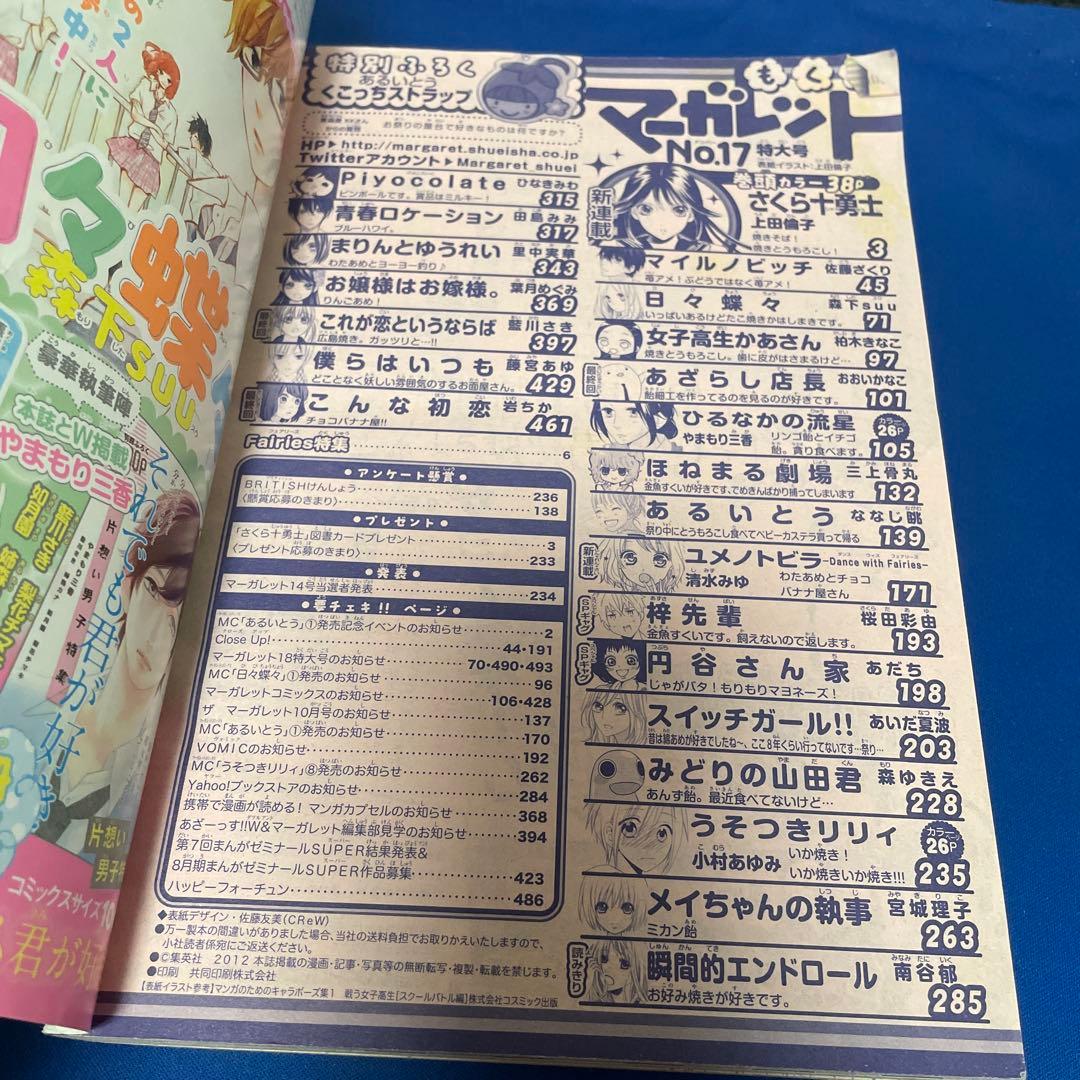 の2人に
中!
日
マ蝶
森下suu
豪華執筆陣
本誌とW掲載
やまもり三香
それでも君が好き
片想い男子特集
片想い
男子特
コミックスサイズ
君が好
特別ふろく
あるいとう
くこっちストラップ
お祭りの屋台で好きなものは何ですか?
HP▶http://margaret.shueisha.co.jp
Twitterアカウント▶Margaret_shuei
Piyocolate ひなきみわ
ピンボールです。賞品はミルキー!
315
青春ロケーション 田島みみ
ブルーハワイ。
317
まりんとゆうれい 里中実華
わたあめとヨーヨー釣り♪
343
お嬢様はお嫁様。 葉月めぐみ
りんごあめ!
369
最終回
これが恋というならば 藍川さき
広島焼き。ガッツリと…!!
397
僕らはいつも 藤宮あゆ
どことなく妖しい雰囲気のするお面屋さん。
429
最終回
こんな初恋 岩ちか
チョコバナナ屋!!
461
Fairies特集 6
●アンケート懸賞●
BRITISHけんしょう 236
〈懸賞応募のきまり〉 138
●プレゼント●
「さくら十勇士」図書カードプレゼント 3
〈プレゼント応募のきまり〉 233
●発表●
マーガレット14号当選者発表 234
●要チェキ!! ページ●
MC「あるいとう」①発売記念イベントのお知らせ 2
Close Up! 44・191
マーガレット18特大号のお知らせ 70・490・493
MC「日々蝶々」①発売のお知らせ 96
マーガレットコミックスのお知らせ 106・428
ザ マーガレット10月号のお知らせ 137
MC「あるいとう」①発売のお知らせ 170
VOMICのお知らせ 192
MC「うそつきリリィ」⑧発売のお知らせ 262
Yahoo!ブックストアのお知らせ 284
携帯で漫画が読める! マンガカプセルのお知らせ 368
あざーっす!!W&マーガレット編集部見学のお知らせ 394
第7回まんがゼミナールSUPER結果発表&
8月期まんがゼミナールSUPER作品募集 423
ハッピーフォーチュン 486
◆表紙デザイン・佐藤友美(CReW)
●万一製本の間違いがありました場合、当社の送料負担でお取りかえいたしますので、
小社読者係宛にご返送ください。
●©集英社 2012 本誌掲載の漫画・記事・写真等の無断転写・複製・転載を禁じます。
●印刷 共同印刷株式会社
【表紙イラスト参考】マンガのためのキャラポーズ集1 戦う女子高生[スクールバトル編]株式会社コスミック出版
もく
マーガレット
No.17 特大号
表紙イラスト:上田倫子
新連載
巻頭カラー38P
さくら十勇士
上田倫子
焼きそば!
焼きとうもろこし!
3
マイルノビッチ 佐藤ざくり
苺アメ!ぶどうではなく苺アメ!
45
日々蝶々 森下suu
いっぱいあるけどたこ焼きかはしまきです。
71
女子高生かあさん 柏木きなこ
焼きとうもろこし。歯に皮がはさまるけど…
97
最終回
あざらし店長 おおいかなこ
飴細工を作ってるのを見るのが好きです。
101
ひるなかの流星 カラー26P
やまもり三香 リンゴ飴とイチゴ
飴。貪り食べます。
105
ほねまる劇場 三上骨丸
金魚すくいが好きです、でめきんばかり捕ってしまいます
132
あるいとう ななじ眺
祭り中にとうもろこし食べてベビーカステラ買って帰る
139
新連載
ユメノトビラ-Dance with Fairies-
清水みゆ わたあめとチョコ
バナナ屋さん
171
SPギャグ
梓先輩 桜田彩由
金魚すくいです。飼えないので返します。
193
SPギャグ
円谷さん家 あだち
じゃがバタ!もりもりマヨネーズ!
198
スイッチガール!! あいだ夏波
昔は綿あめが好きでしたね〜、ここ8年くらい行ってないです…祭り…
203
みどりの山田君 森ゆきえ
あんず飴。最近食べてないけど…
228
うそつきリリィ カラー26P
小村あゆみ いか焼き!
いか焼きいか焼き!!!
235
メイちゃんの執事 宮城理子
ミカン飴
263
読みきり
瞬間的エンドロール 南谷郁
お好み焼きが好きです。
285